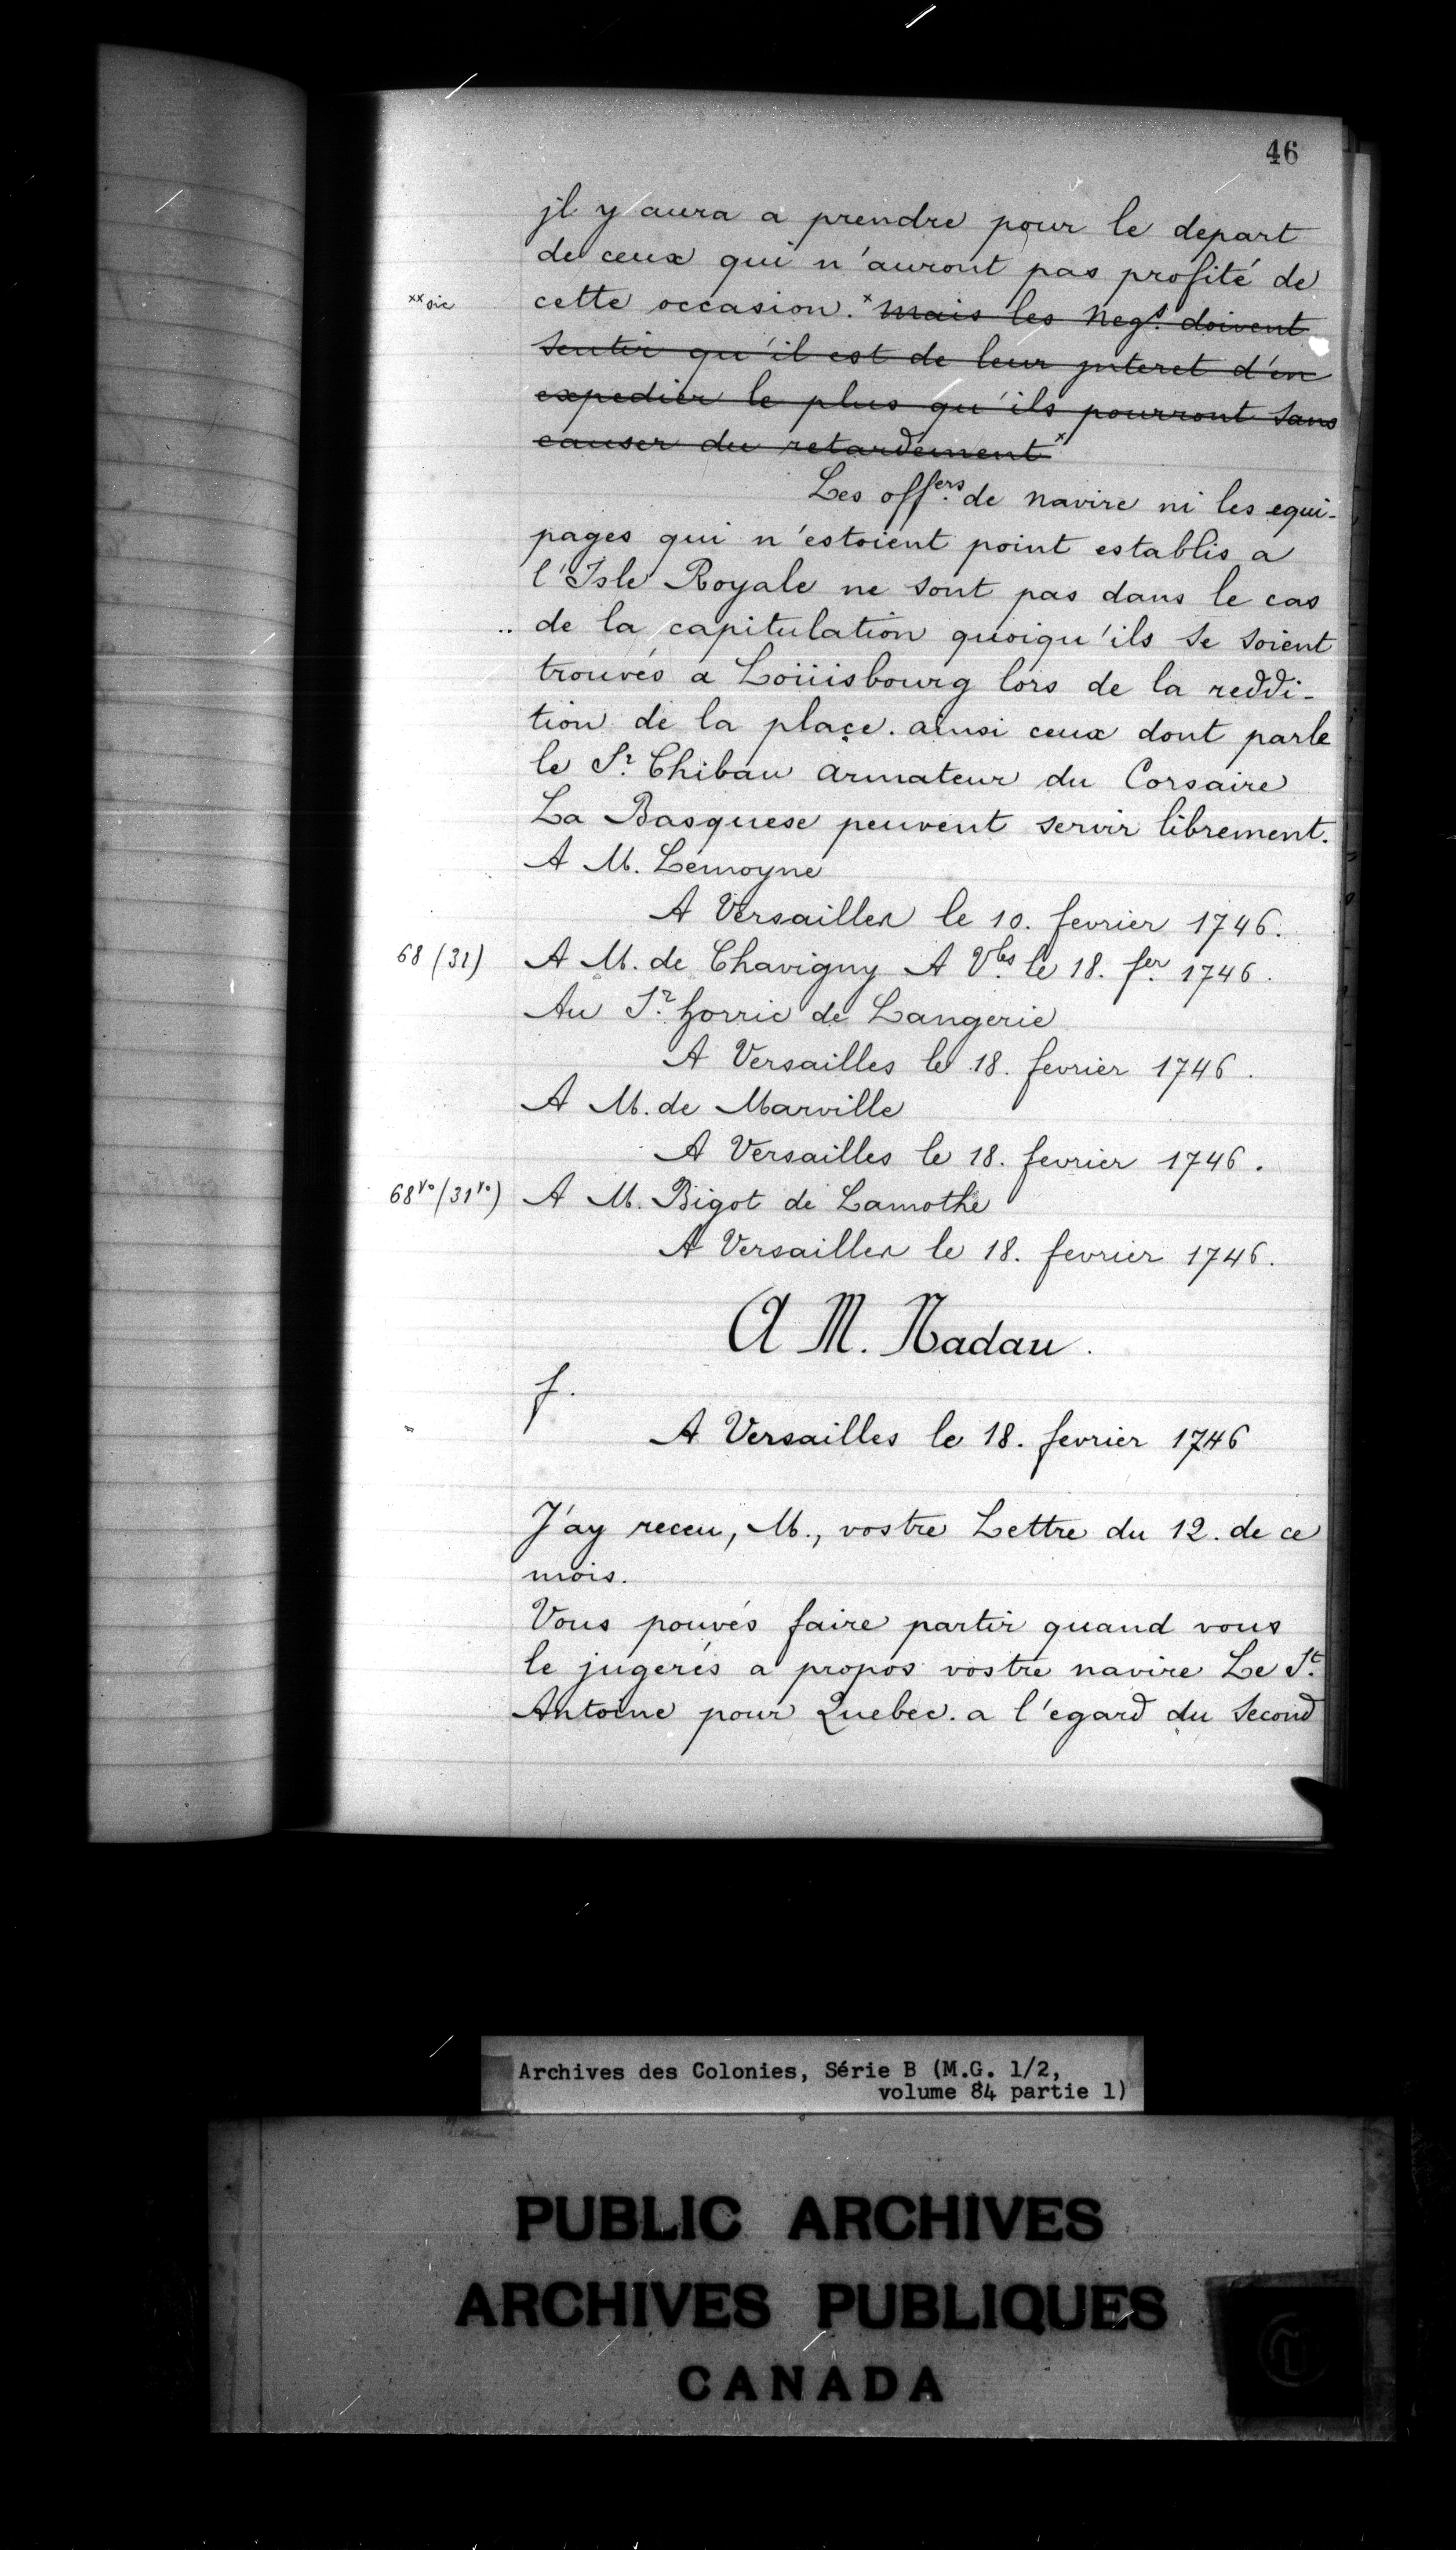 46
jl y aura a prendre pour le depart
de ceux qui n'auront pas profité de
xx sic
cette occasion. x mais les Negs. doivent
sentir qu'il est de leur jnteret d'en
expedier le plus qu'ils pourront sans
causer du retardement x
Les offers. de navire ni les equi-
pages qui n'estoient point establis a
l'Isle Royale ne sont pas dans le cas
.. de la capitulation quoiqu'ils se soient
trouvés a Loüisbourg lors de la reddi-
tion de la place. ainsi ceux dont parle
le Sr. Chibau armateur du Corsaire
La Basquese peuvent servir librement.
A M. Lemoyne
A Versailles le 10. fevrier 1746.
68 (31)
A M. de Chavigny A Vles le 18. fer. 1746.
Au Sr. horric de Langerie
A Versailles le 18. fevrier 1746.
A M. de Marville
A Versailles le 18. fevrier 1746.
68vo (31vo)
A M. Bigot de Lamothe
A Versailles le 18. fevrier 1746.
A M. Nadau.
f.
A Versailles le 18. fevrier 1746
J'ay receu, M., vostre Lettre du 12. de ce
mois.
Vous pouvés faire partir quand vous
le jugerés a propos vostre navire Le St.
Antoine pour Quebec. a l'egard du second
Archives des Colonies, Série B (M.G. 1/2,
volume 84 partie 1)
PUBLIC ARCHIVES
ARCHIVES PUBLIQUES
CANADA